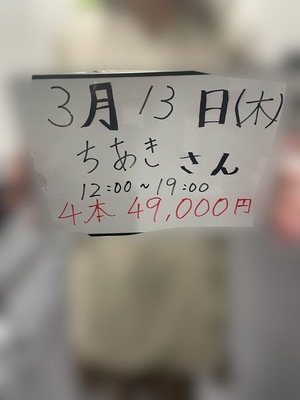 3月13日(木)
ちあきさん
12:00~19:00
4本 49,000円